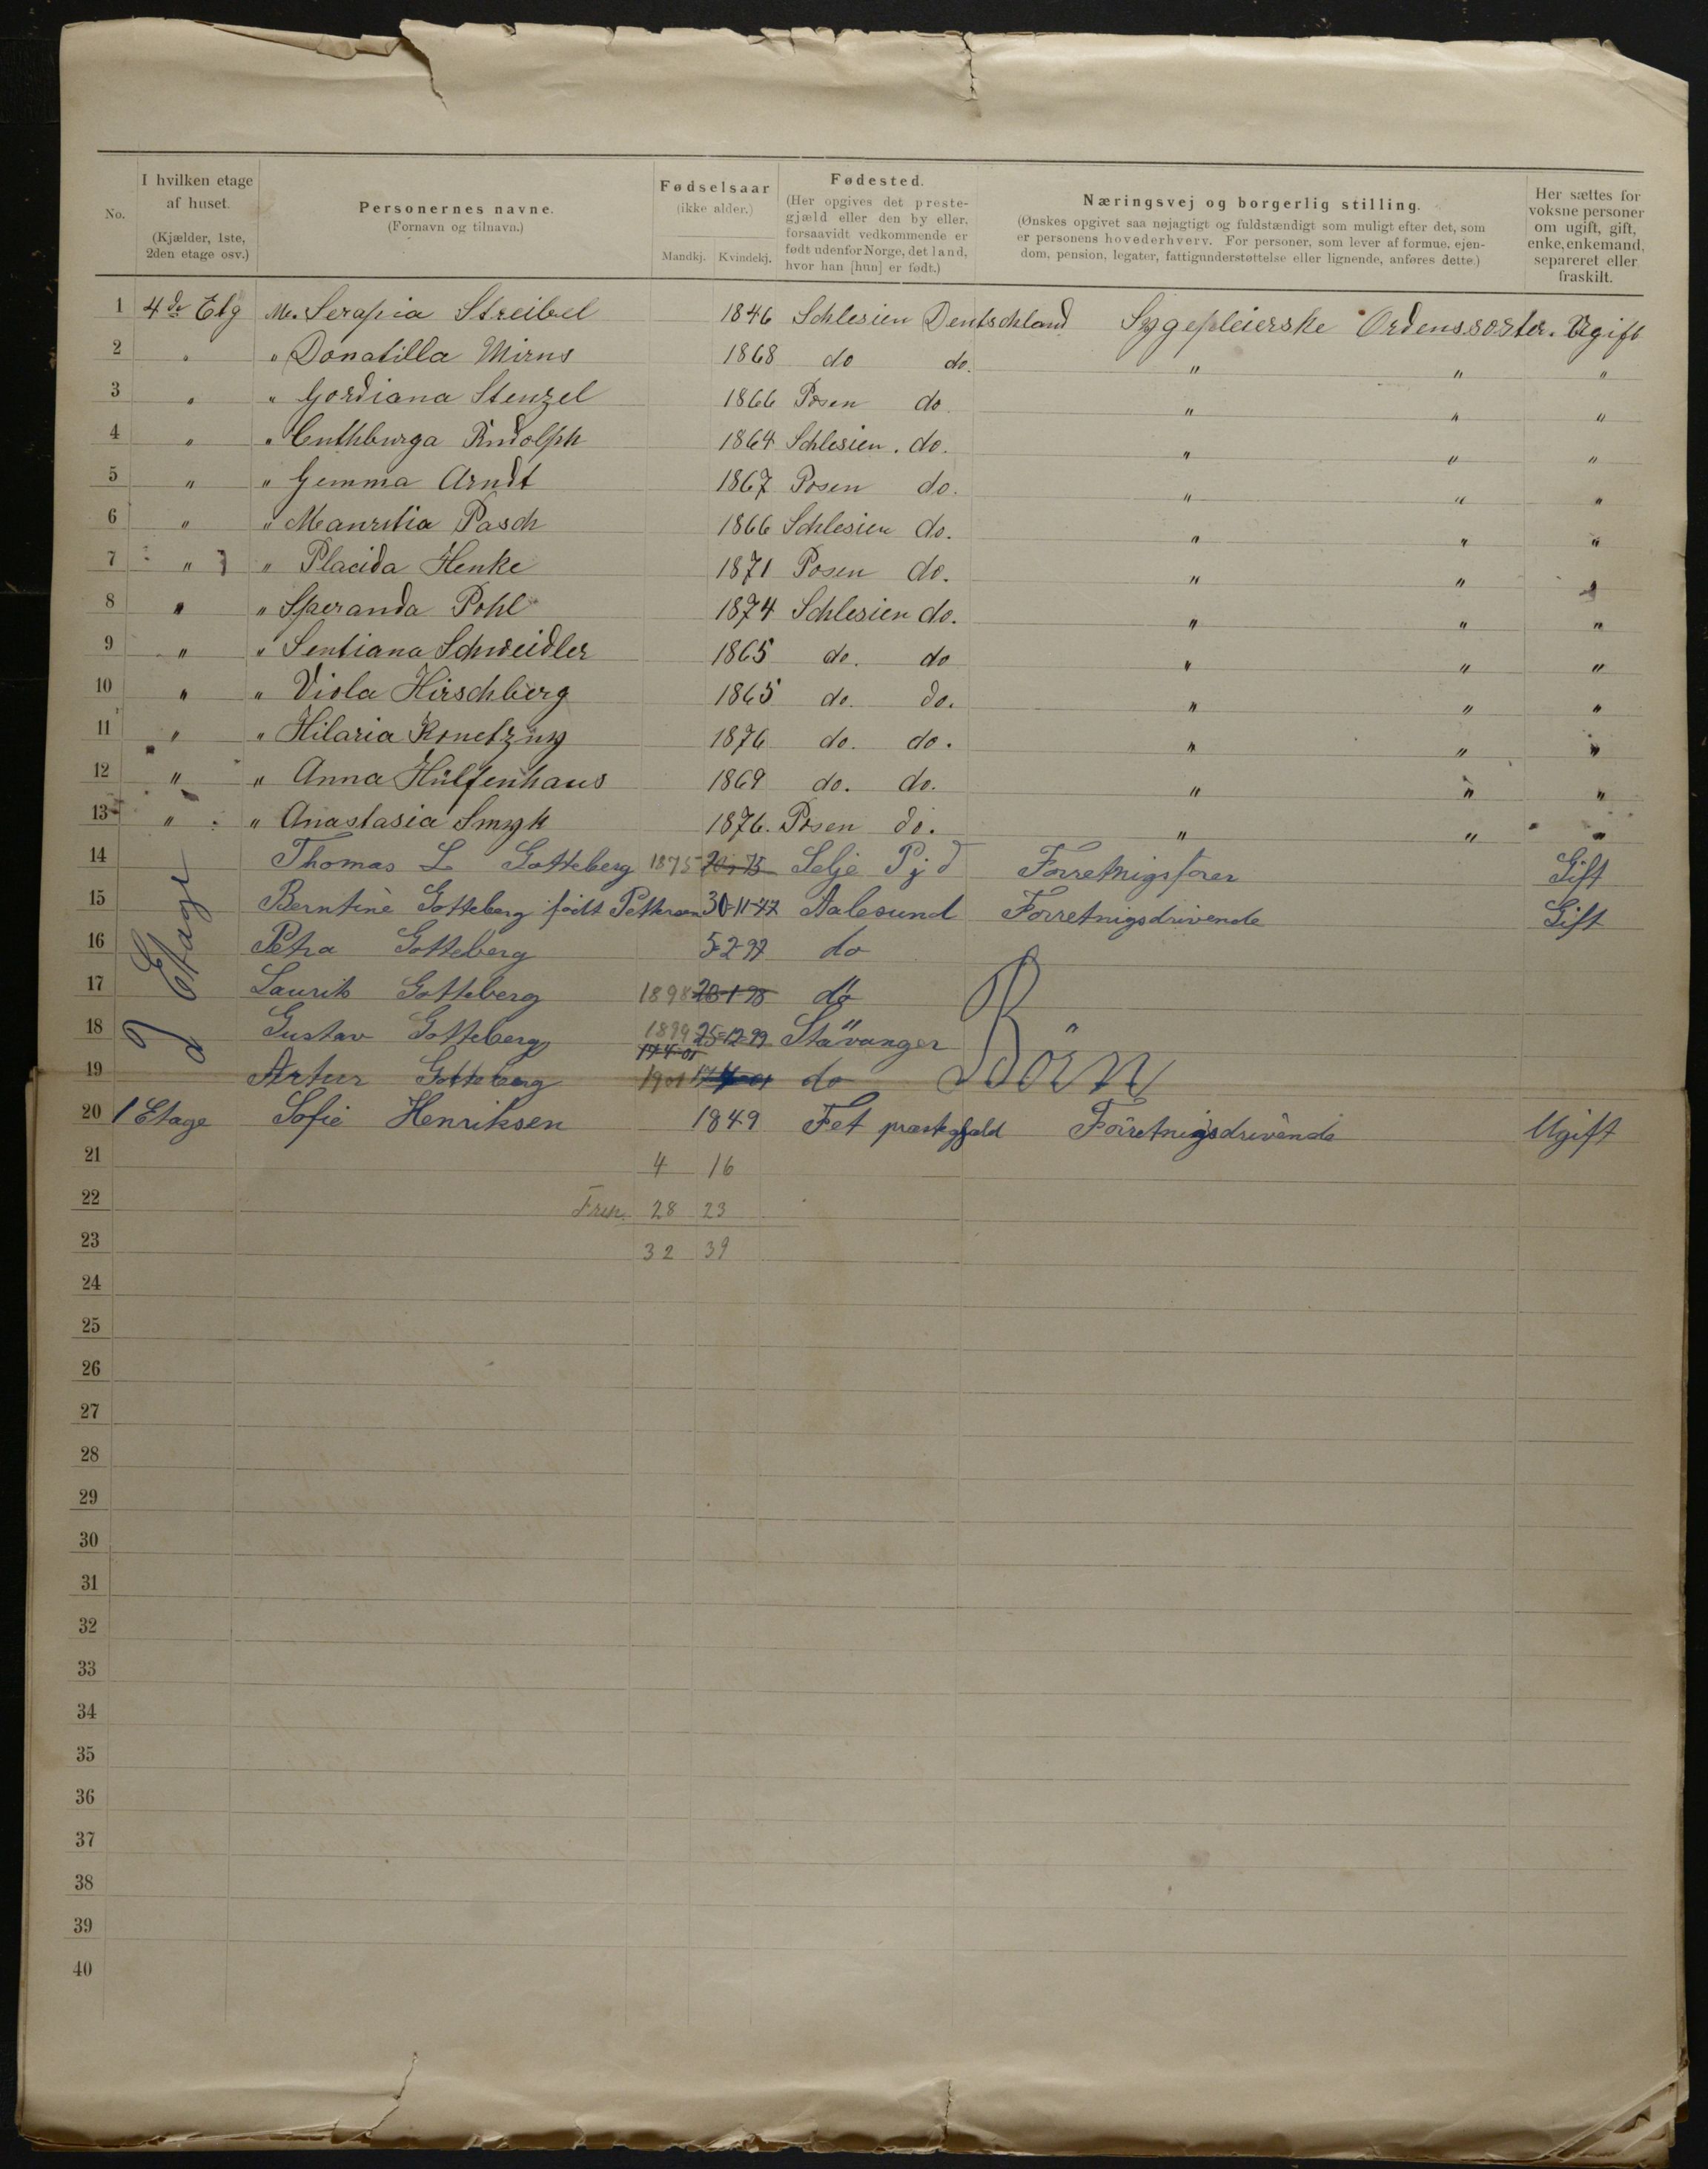 No. I hvilken etage af huset. (Kjælder, 1ste, 2den etage osv.) Personernes navne. (Fornavn og tilnavn.) Fødselsaar (ikke alder.) Mandkj. Kvindekj. Fødested. (Her opgives det prestegjæld eller den by eller, forsaavidt vedkommende er født udenfor Norge, det land, hvor han [hun] er født.) Næringsvej og borgerlig stilling. (Ønskes opgivet saa nøjagtigt og fuldstændigt som muligt efter det, som er personens hovederhverv. For personer, som lever af formue, ejendom, pension, legater, fattigunderstøttelse eller lignende, anføres dette.) Her sættes for voksne personer om ugift, gift, enke, enkemand, separeret eller fraskilt.
1 4de Etg Me. Serapia Streibel 1846 Schlesien Deutschland Sygepleierske Ordenssøster. Ugift
2 " " Donatilla Mirus 1868 do do. " " "
3 " " Gordiana Stenzel 1866 Posen do. " " "
4 " " Cuthburga Rudolph 1864 Schlesien. do. " " "
5 " " Gemma Arndt 1867 Posen do. " " "
6 " " Mauritia Pasch 1866 Schlesien do. " " "
7 " " Placida Henke 1871 Posen do. " " "
8 " " Speranda Pohl 1874 Schlesien do. " " "
9 " " Sentiana Schweidler 1865 do. do " " "
10 " " Viola Hirschberg 1865 do. do. " " "
11 " " Hilaria Konetzny 1876 do. do. " " "
12 " " Anna Hülfenhaus 1869 do. do. " " "
13 " " Anastasia Smyk 1876. Posen do. " " "
14 Thomas L Gotteberg 1875 Selje Pjd Forretnigsfører Gift
15 Berntine Gotteberg født Pettersen 30-11-77 Aalesund Forretnigsdrivende Gift
16 2 Etage Petra Gotteberg 5-2-97 do
17 Laurits Gotteberg 1898 20-1-98 do
18 Gustav Gotteberg 1899 25-12-99 Stavanger Börn
17-4-01
19 Artur Gotteberg 1901 17-4-01 do
20 1 Etage Sofie Henriksen 1849 Fet præstegjæld Forretnigsdrivende Ugift
21 4 16
22 28 23
23 32 39
24
25
26
27
28
29
30
31
32
33
34
35
36
37
38
39
40